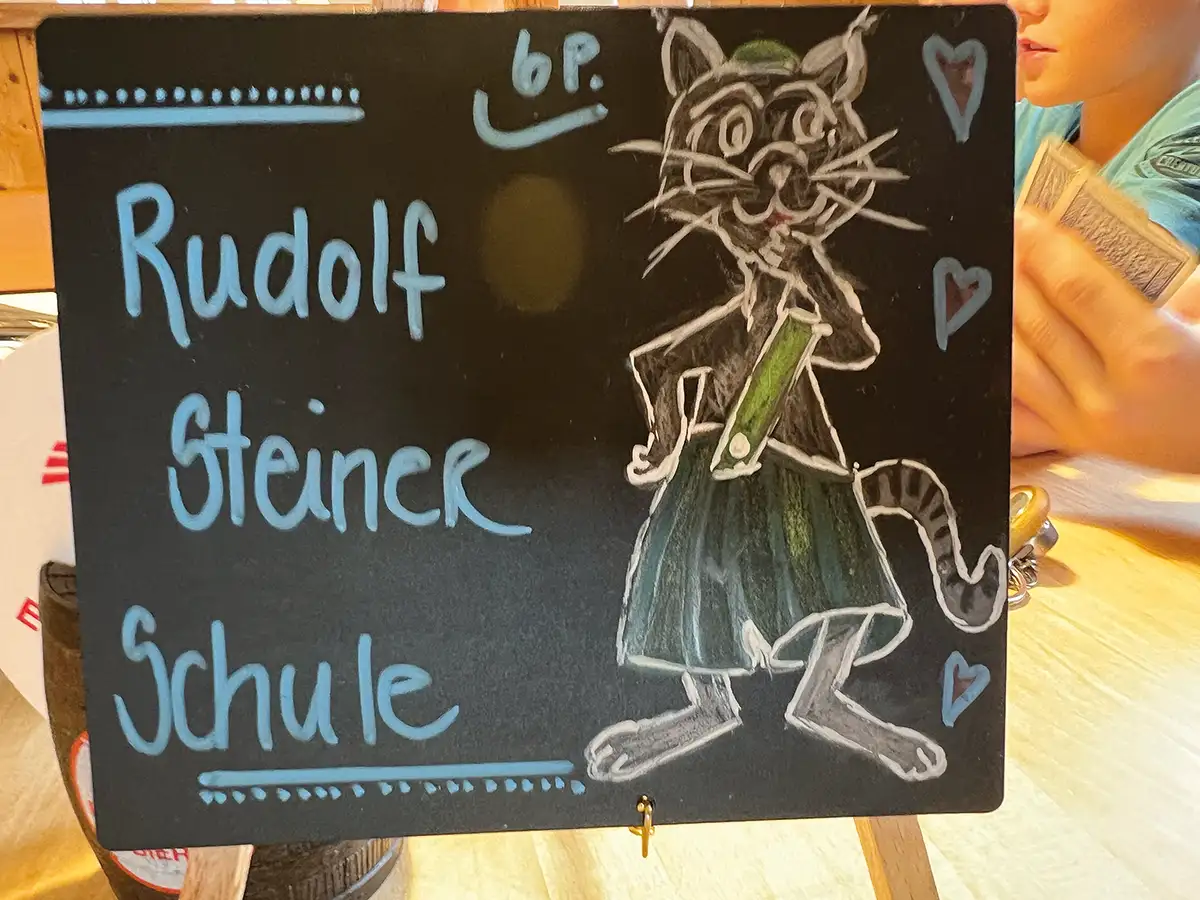 6P.
Rudolf
Steiner
Schule